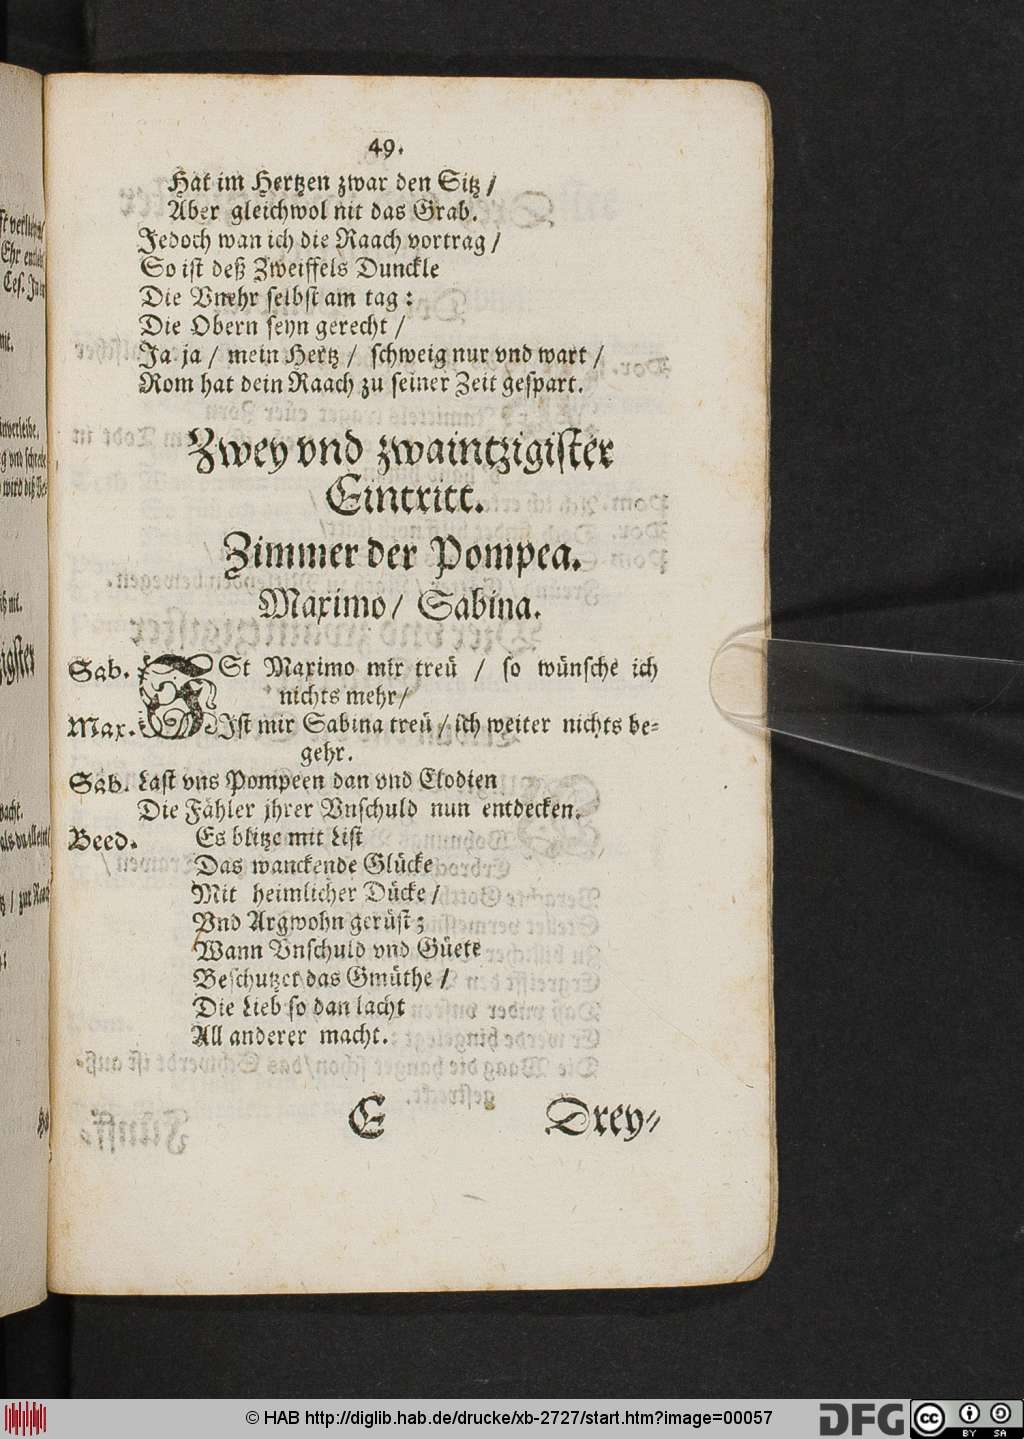 49.
Hat im Hertzen zwar den Sitz /
Aber gleichwol nit das Grab.
Jedoch wan ich die Raach vortrag /
So ist deß Zweiffels Dunckle
Die Vnehr selbst am tag :
Die Obern seyn gerecht /
Ja ja / mein Hertz / schweig nur vnd wart /
Rom hat dein Raach zu seiner Zeit gespart.
Zwey vnd zwaintzigister
Eintritt.
Zimmer der Pompea.
Maximo / Sabina.
Sab. ISt Maximo mir treü / so wünsche ich
nichts mehr /
Max. Ist mir Sabina treü / ich weiter nichts be-
gehr.
Sab. Last vns Pompeen dan vnd Clodien
Die Fähler jhrer Vnschuld nun entdecken.
Beed. Es blitze mit List
Das wanckende Glücke
Mit heimlicher Dücke /
Vnd Argwohn gerüst ;
Wann Vnschuld vnd Güete
Beschutzet das Gmüthe /
Die Lieb so dan lacht
All anderer macht.
E Drey-
© HAB http://diglib.hab.de/drucke/xb-2727/start.htm?image=00057
DFG
cc BY SA